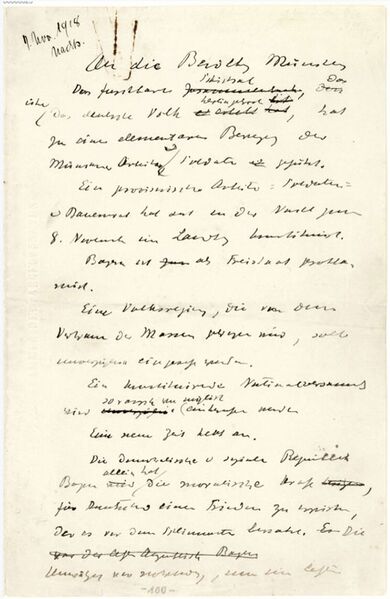 7 Nov. 1918
Nachts.
An die Bevölk. Münchens
Das furchtbare Schicksal, das
über das deutsche Volk hereingebrochen, hat
zu einer elementaren Bewegung der
Münchner Arbeiter u Soldaten geführt.
Ein provisorischer Arbeiter- Soldaten-
u Bauernrat hat sich in der Nacht zum
8. November im Landtag konstituiert.
Bayern ist als Freistaat
Eine Volksregierung, die von dem
Vertrauen der Massen getragen wird, soll
unverzüglich eingesetzt werden.
Eine konstituierende Nationalversammlung
wird so rasch wie möglich einberufen werden
Eine neue Zeit hebt an.
Die demokratische u soziale Republik
Bayern allein hat die moralische Kraft
für Deutschland einen Frieden zu erwirken,
der es vor dem Schlimmsten bewahrt.
-100-